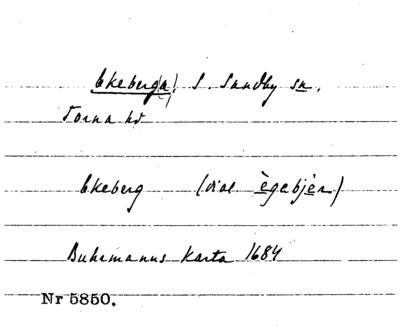 Ekeberg(a) S. Sandby sn.
Torna hd
Ekeberg (dial ègabjèr)
Buhrmanns Karta 1684
Nr 5850.